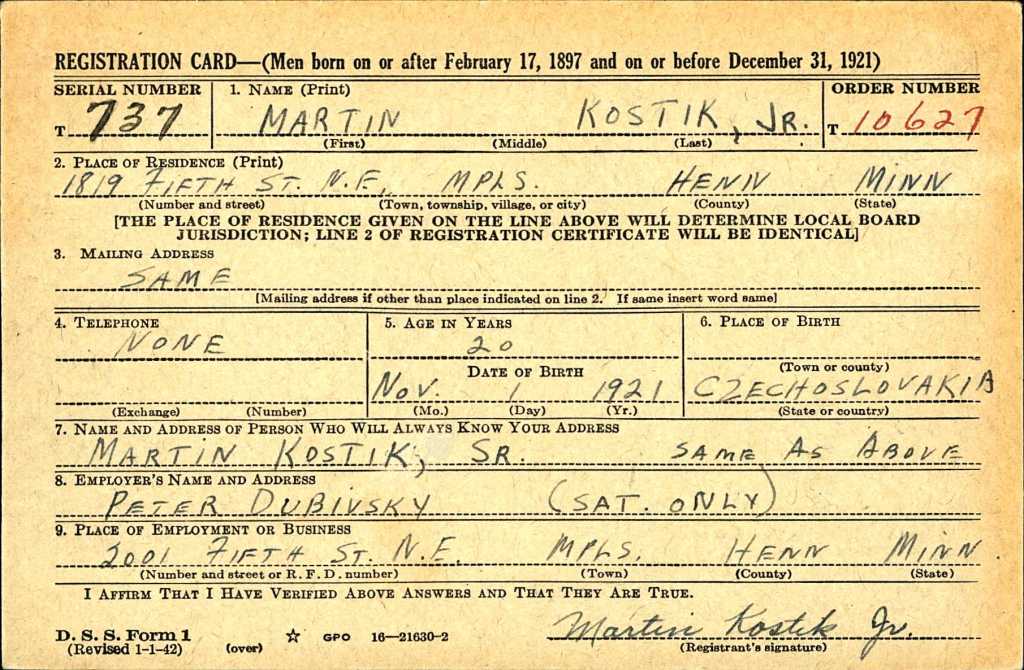 REGISTRATION CARD—(Men born on or after February 17, 1897 and on or before December 31, 1921)
SERIAL NUMBER
T 737
1. NAME (Print)
MARTIN KOSTIK, JR.
(First) (Middle) (Last)
ORDER NUMBER
T 10627
2. PLACE OF RESIDENCE (Print)
1819 FIFTH ST. N.E., MPLS. HENN MINN
(Number and street) (Town, township, village, or city) (County) (State)
[THE PLACE OF RESIDENCE GIVEN ON THE LINE ABOVE WILL DETERMINE LOCAL BOARD
JURISDICTION; LINE 2 OF REGISTRATION CERTIFICATE WILL BE IDENTICAL]
3. MAILING ADDRESS
SAME
[Mailing address if other than place indicated on line 2. If same insert word same]
4. TELEPHONE
NONE
(Exchange) (Number)
5. AGE IN YEARS
20
DATE OF BIRTH
NOV. 1 1921
(Mo.) (Day) (Yr.)
6. PLACE OF BIRTH
(Town or county)
CZECHOSLOVAKIA
(State or country)
7. NAME AND ADDRESS OF PERSON WHO WILL ALWAYS KNOW YOUR ADDRESS
MARTIN KOSTIK, SR. SAME AS ABOVE
8. EMPLOYER'S NAME AND ADDRESS
PETER DUBIVSKY (SAT. ONLY)
9. PLACE OF EMPLOYMENT OR BUSINESS
2001 FIFTH ST. N.E. MPLS. HENN MINN
(Number and street or R. F. D. number) (Town) (County) (State)
I AFFIRM THAT I HAVE VERIFIED ABOVE ANSWERS AND THAT THEY ARE TRUE.
D. S. S. Form 1
(Revised 1-1-42) (over) ☆ GPO 16—21630-2
Martin Kostik Jr.
(Registrant's signature)